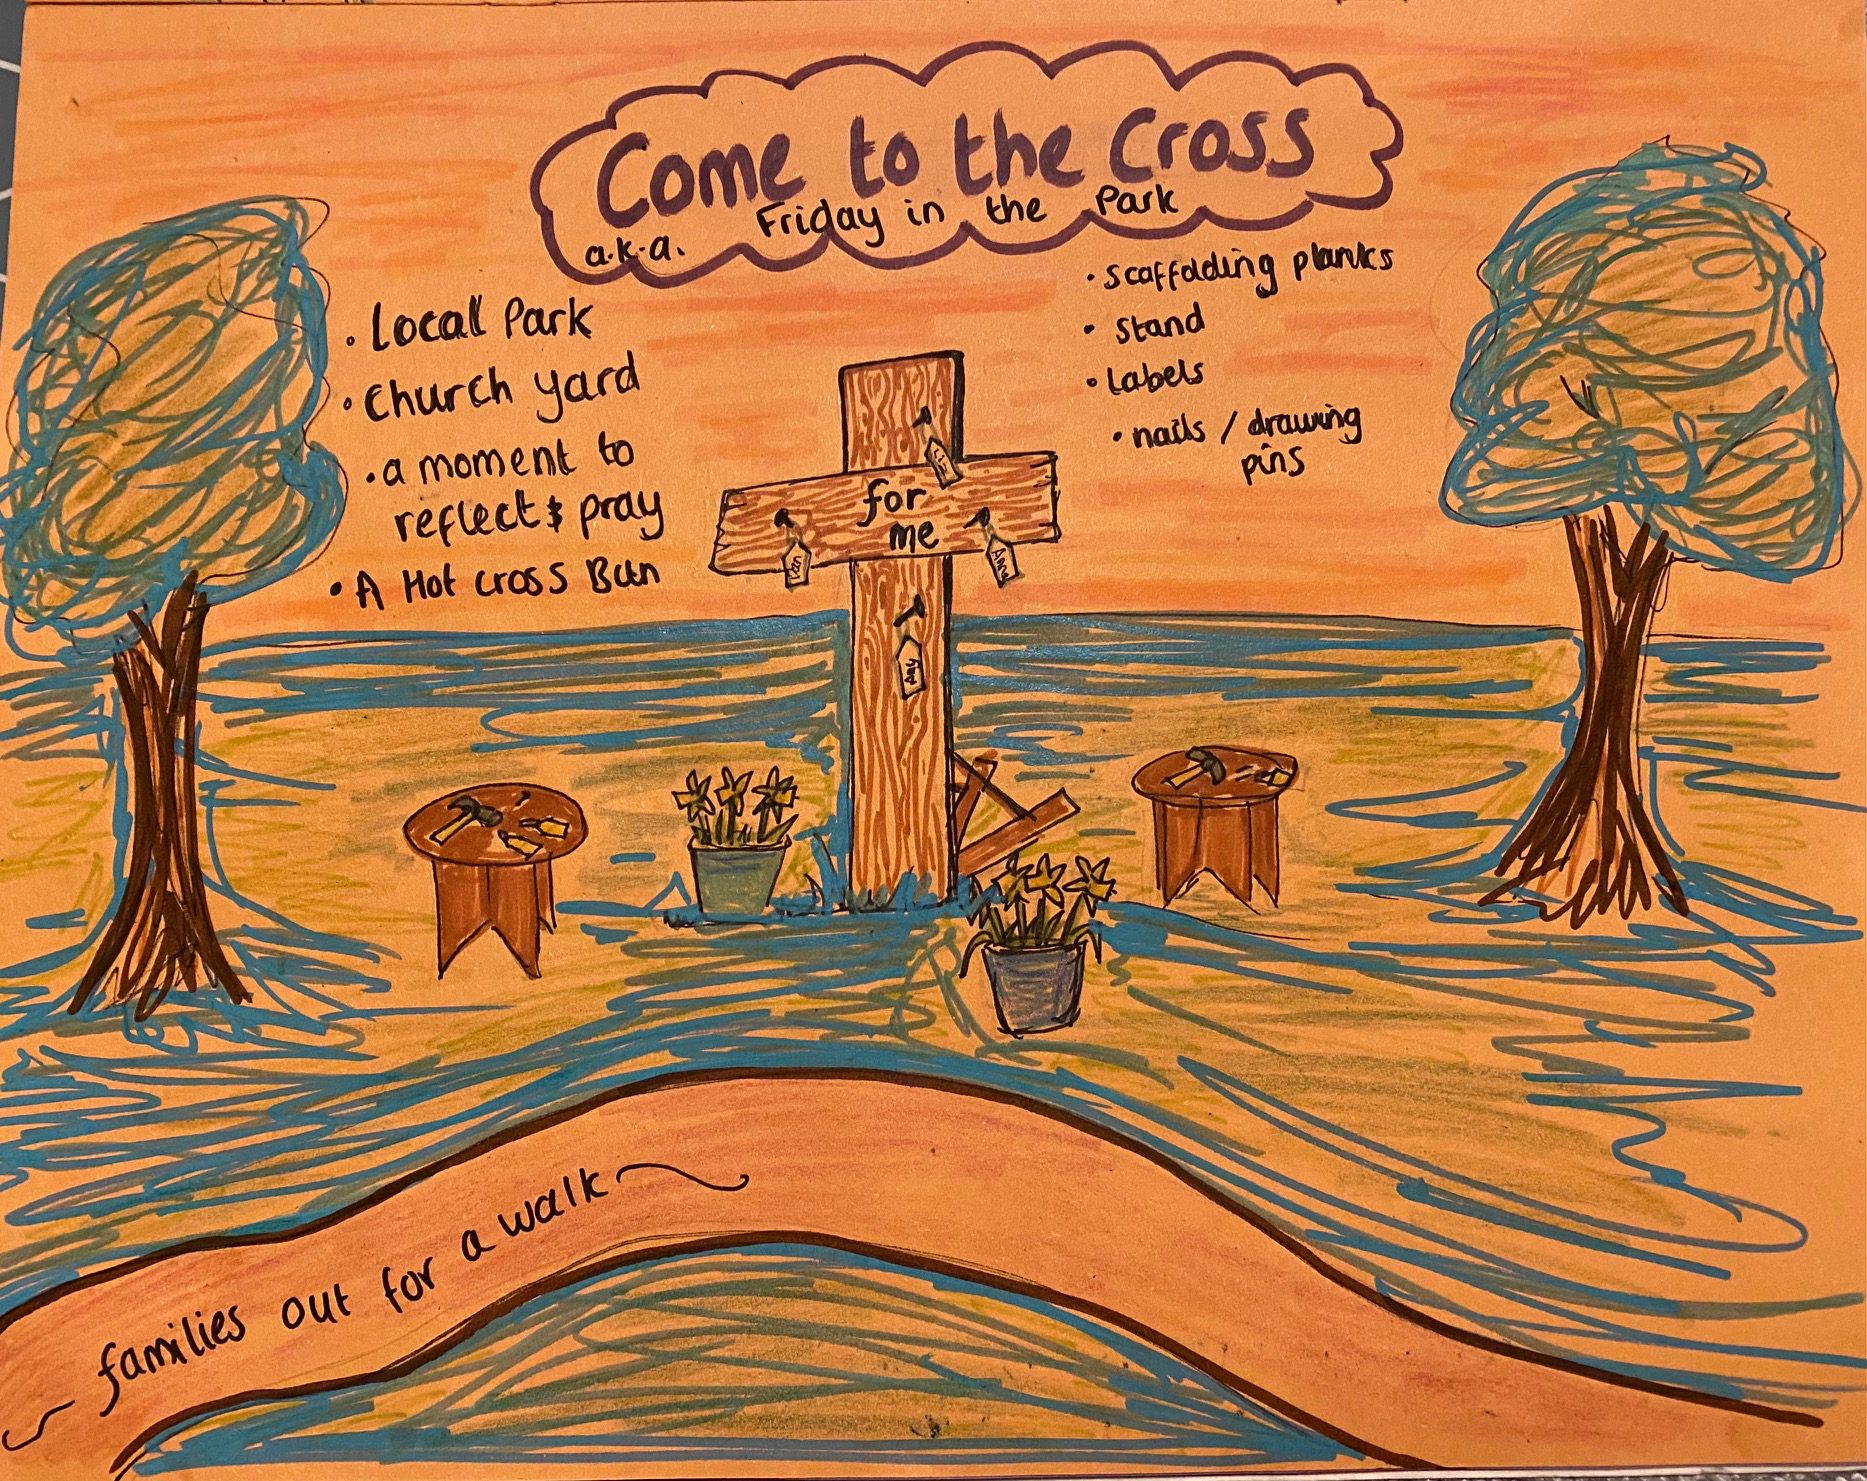 Come to the Cross
a.k.a. Friday in the Park
• Local Park
• Church yard
• a moment to
reflect & pray
• A Hot Cross Bun
• scaffolding planks
• stand
• Labels
• nails / drawing
pins
for
me
Anna
families out for a walk